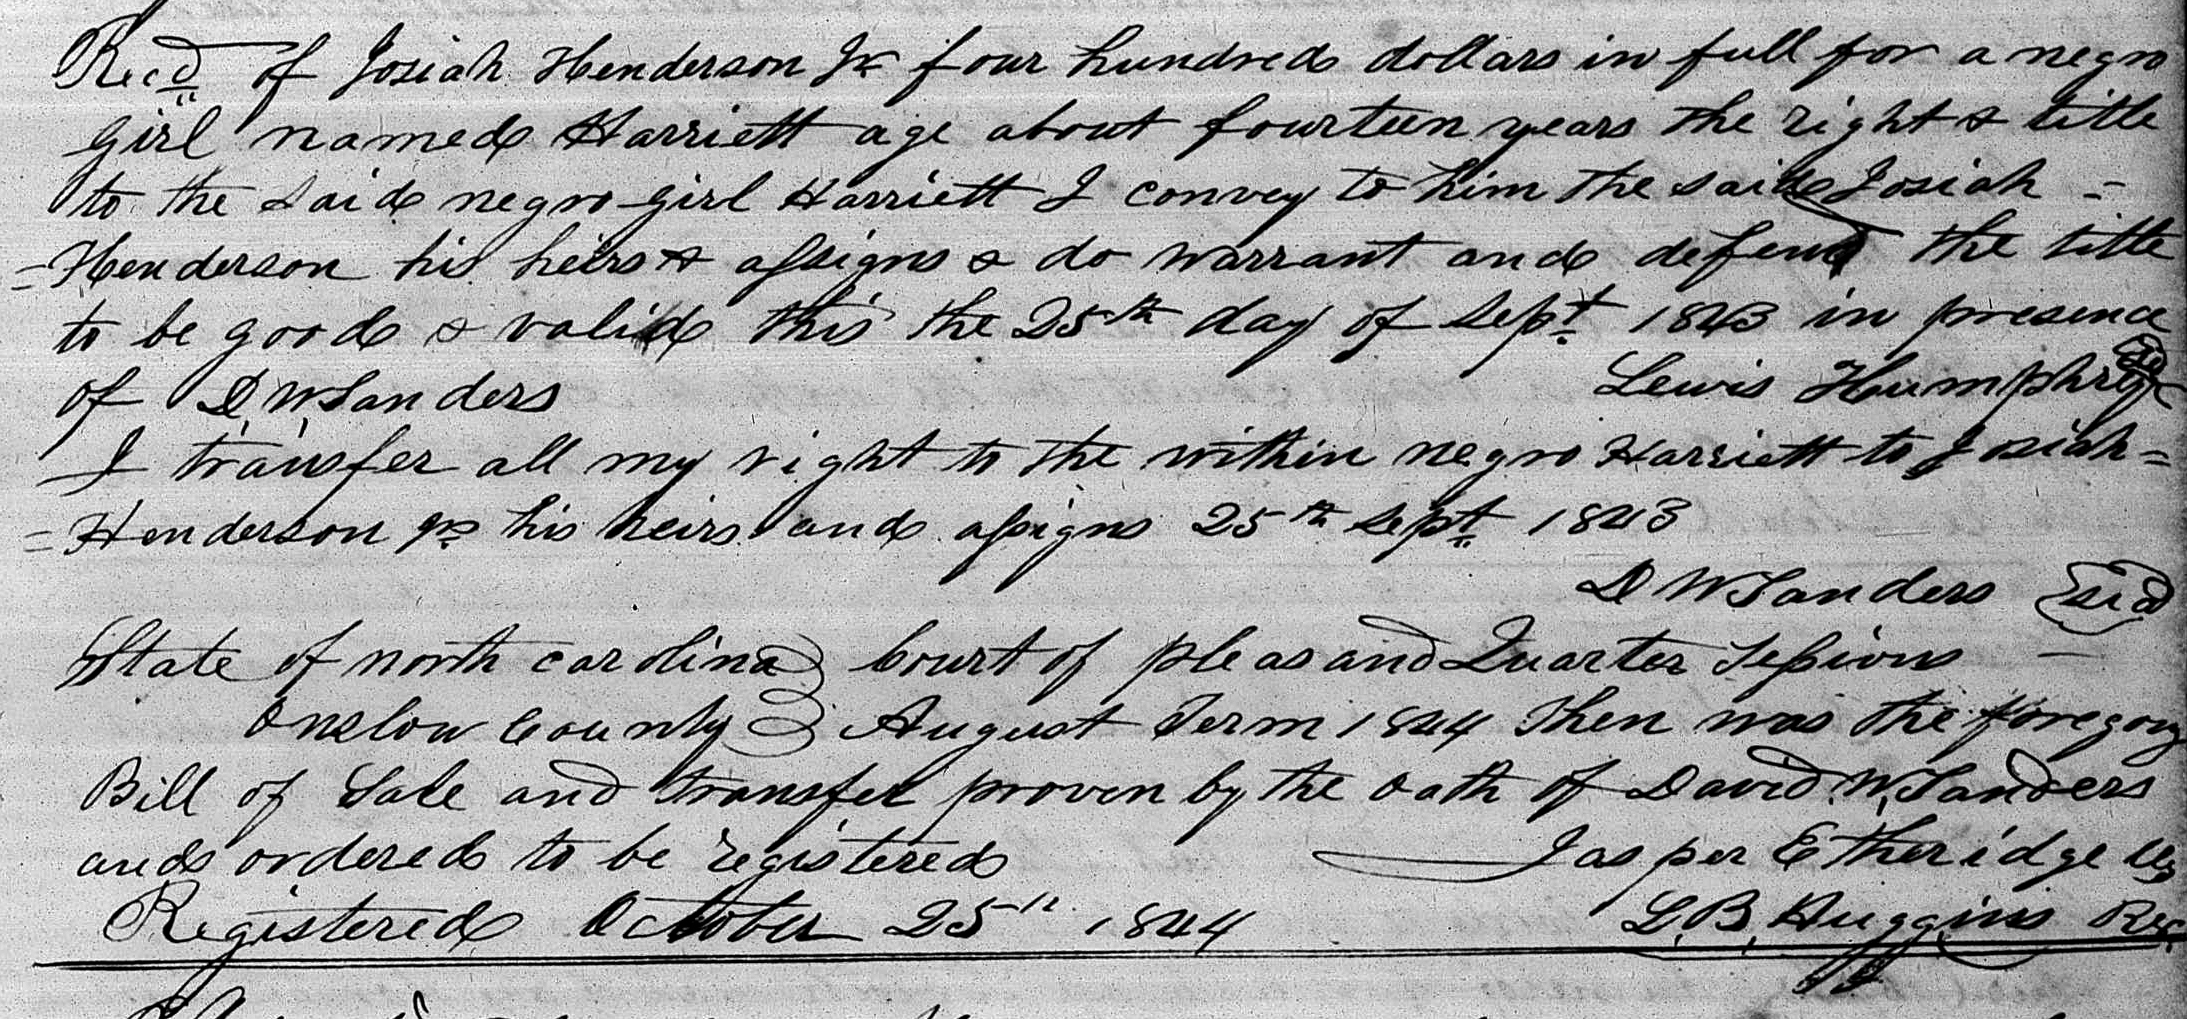 Recd of Josiah Henderson Jr four hundred dollars in full for a negro
girl named Harriett age about fourteen years the right & title
to the said negro girl Harriett I convey to him the said Josiah =
= Henderson his heirs & assigns & do warrant and defend the title
to be good & valid this the 25th day of Sept 1843 in presence
of D. W. Sanders Lewis Humphrey
I transfer all my right to the within negro Harriett to Josiah =
= Henderson Jr his heirs and assigns 25th Sept 1843
D W Sanders
State of north carolina Court of pleas and Quarter Sessions
Onslow County August Term 1844 Then was the foregoing
Bill of Sale and transfer proven by the oath of David W. Sanders
and ordered to be registered Jasper Etheridge Clk
Registered October 25th 1844 L. B. Huggins Reg